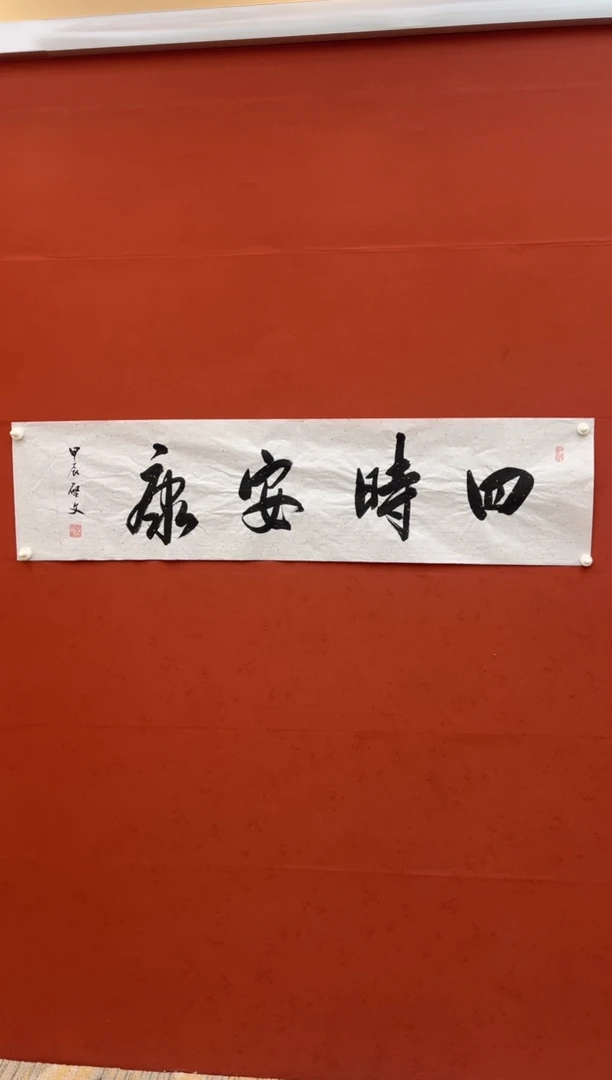 四時安康
甲辰啓文